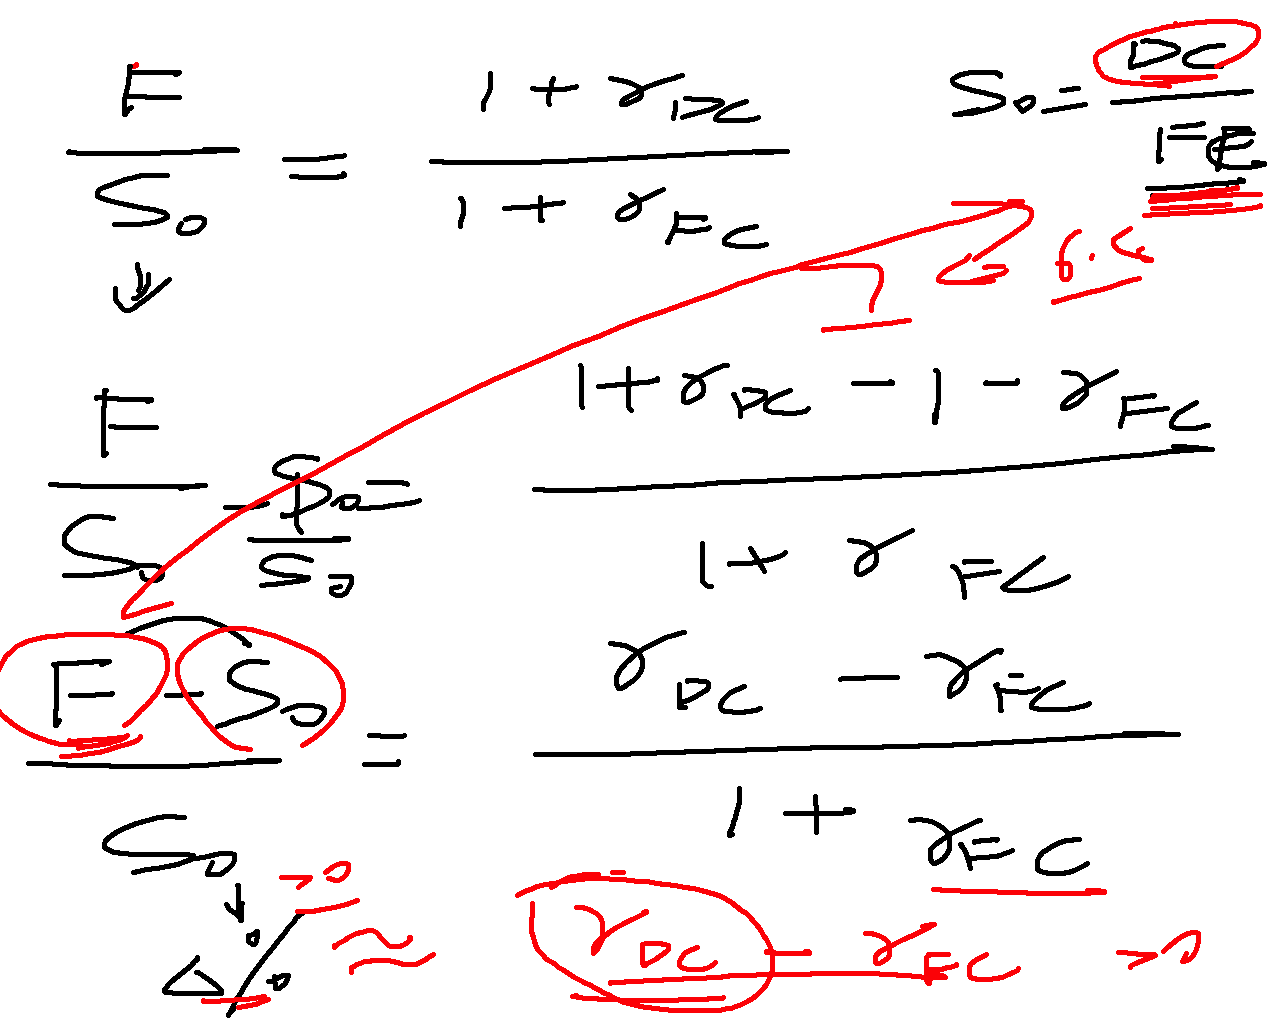 F/S₀ = (1 + r_DC)/(1 + r_FC)
S₀ = DC/FC
F/S₀ - S₀/S₀ = (1 + r_DC - 1 - r_FC)/(1 + r_FC)
(F - S₀)/S₀ = (r_DC - r_FC)/(1 + r_FC)
≈ r_DC - r_FC